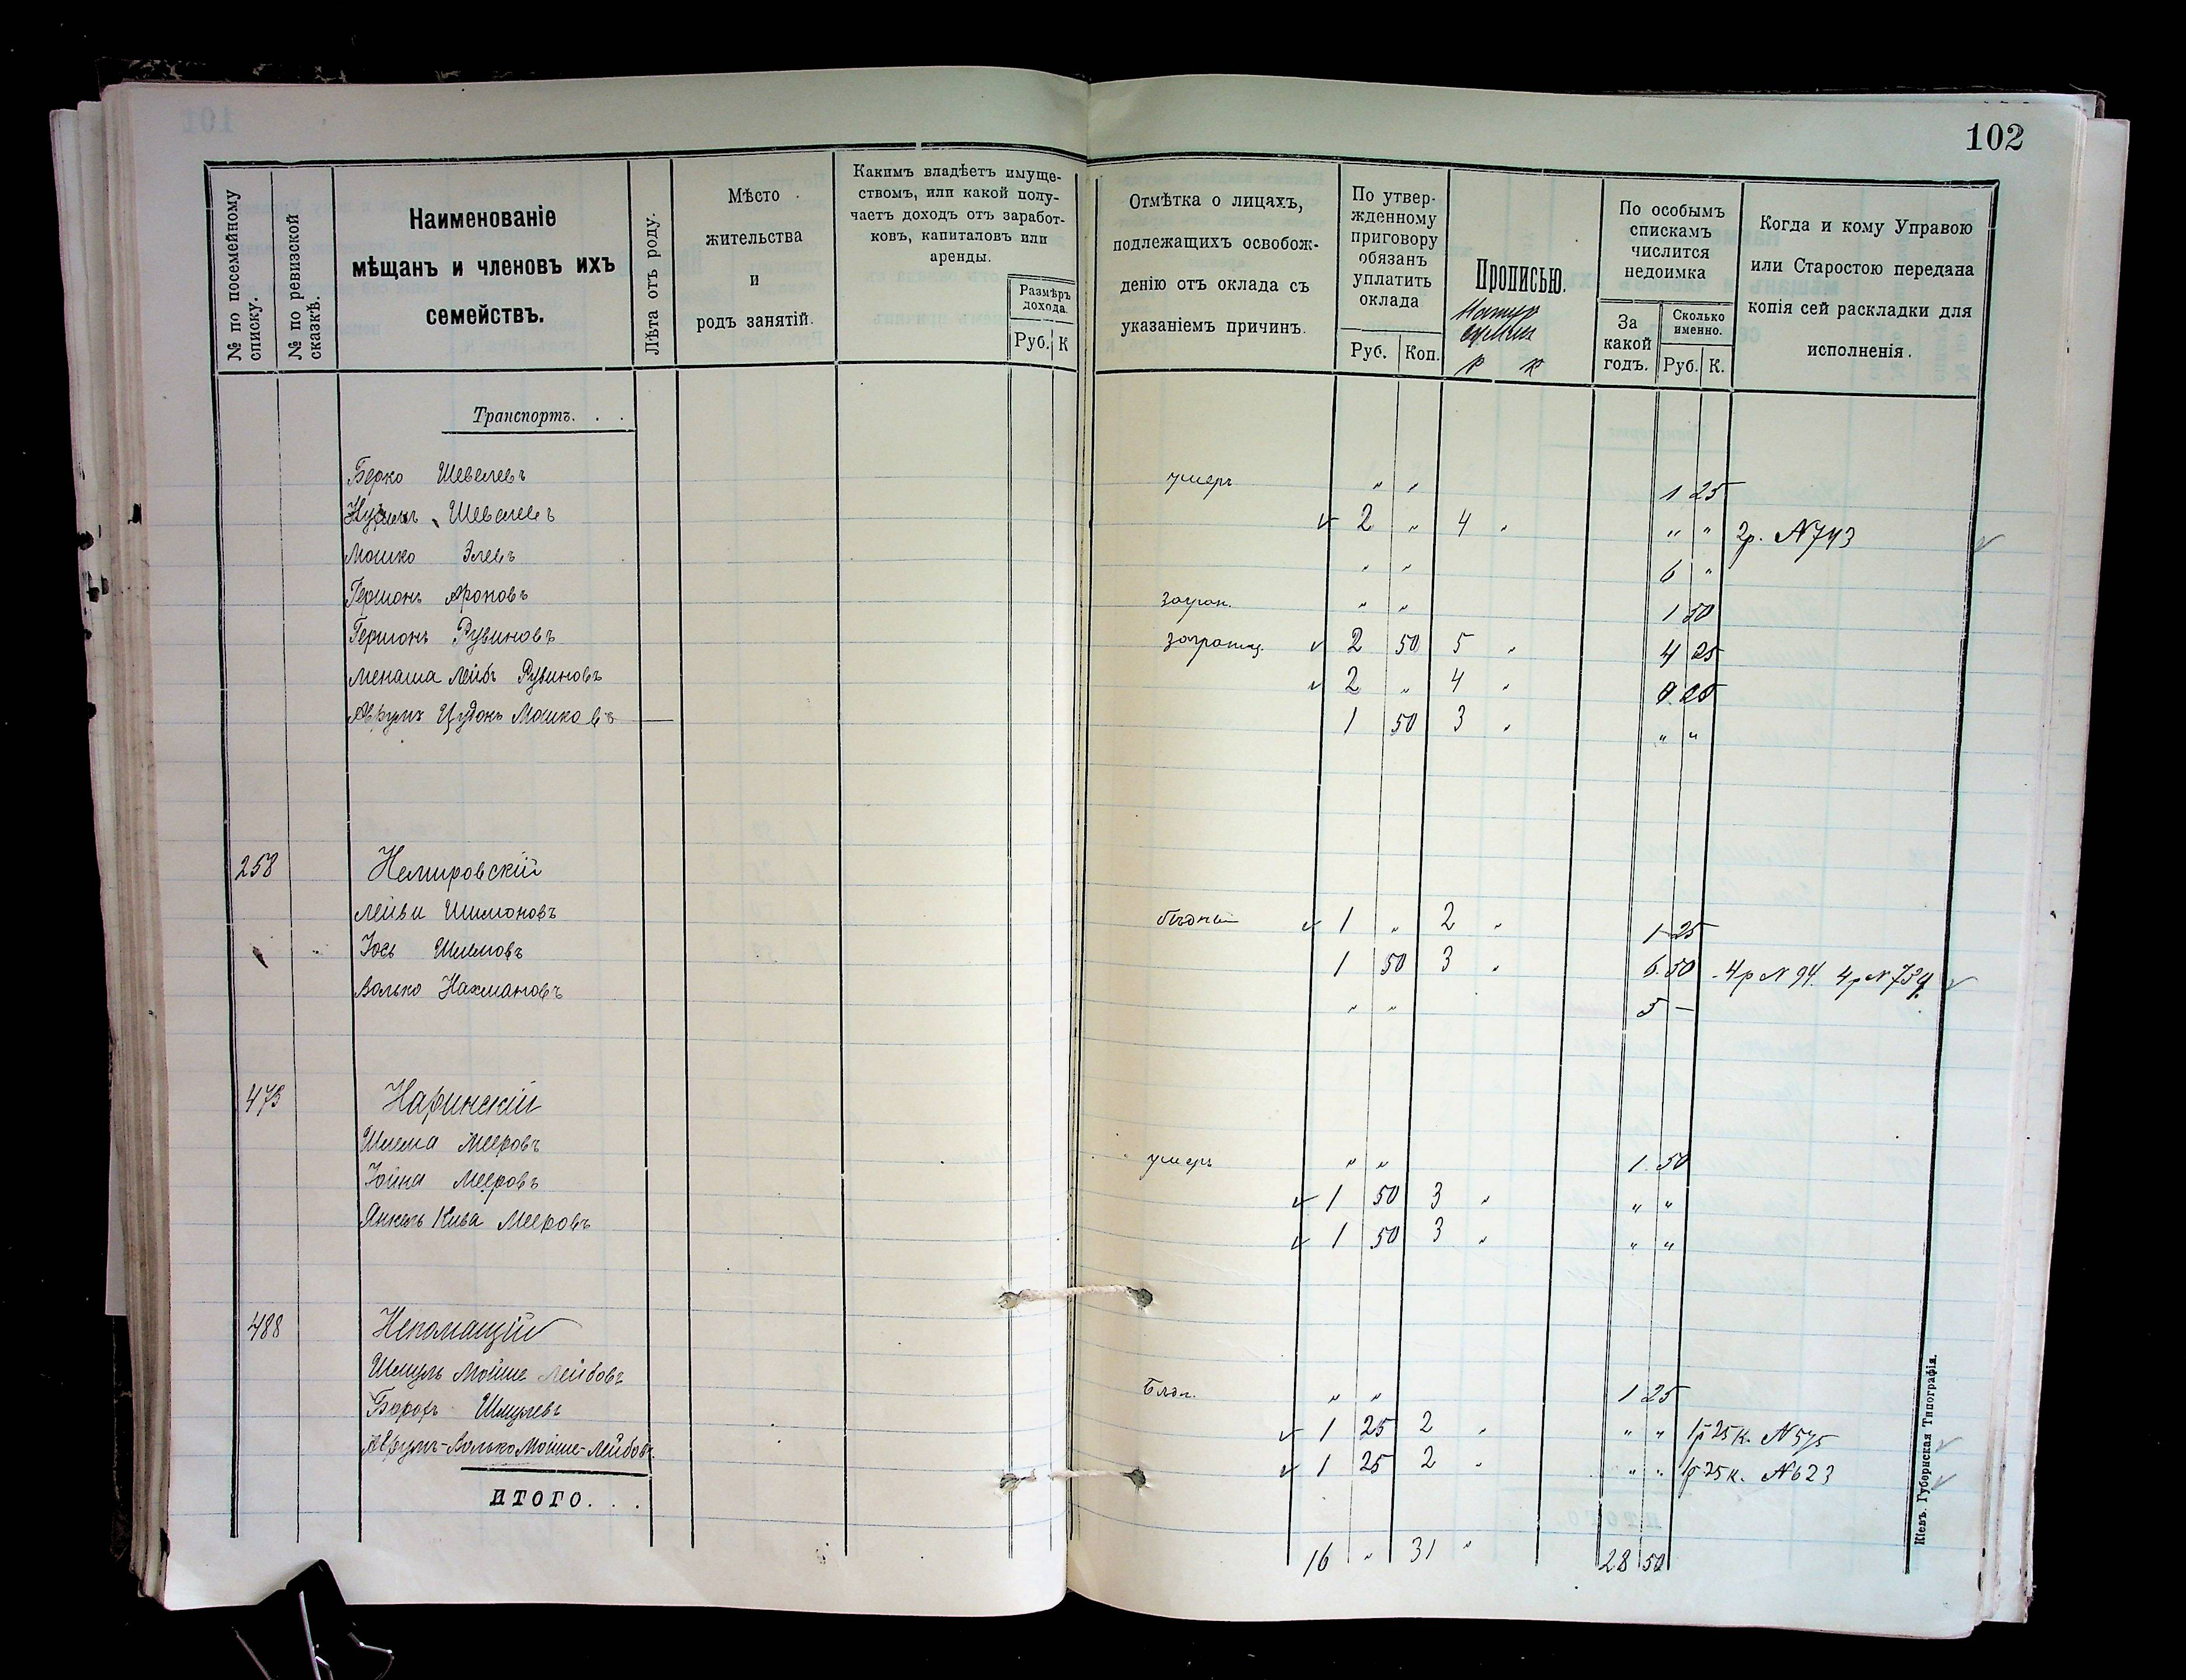 102
№ по посемейному списку.
№ по ревизской сказкѣ.
Наименованіе мѣщанъ и членовъ ихъ семействъ.
Лѣта отъ роду.
Мѣсто жительства и родъ занятій.
Какимъ владѣетъ имуще-
ствомъ, или какой полу-
чаетъ доходъ отъ заработ-
ковъ, капиталовъ или
аренды.
Размѣръ дохода.
Руб. К
Отмѣтка о лицахъ,
подлежащихъ освобож-
денію отъ оклада съ
указаніемъ причинъ.
По утвер-
жденному
приговору
обязанъ
уплатить
оклада
Руб. Коп.
Прописью.
р к
По особымъ
спискамъ
числится
недоимка
За какой годъ.
Сколько именно.
Руб. К.
Когда и кому Управою
или Старостою передана
копія сей раскладки для
исполненія.
Транспортъ. . .
Берко Шевелевъ умеръ " " 1 25
Шевелевъ 2 " 4 " " " 2р. N743
Мошко Элевъ " " 6 "
Гершонъ Ароновъ загран. " " 1 50
Гершонъ Рувиновъ заграниц. 2 50 5 " 4 25
Менаша Лейбъ Рувиновъ 2 " 4 "
Аврумъ Мошковъ 1 50 3 " " "
258 Немировскій
Лейви Шимоновъ бѣдны 1 " 2 " 1 25
Іось Шлемовъ 1 50 3 " 6.50 4р N 94. 4р N 739
Волько Нахмановъ " " 5 —
473 Наринскій
Шлема Мееровъ умеръ " " 1.50
Іойна Мееровъ 1 50 3 " " "
Янкель Кива Мееровъ 1 50 3 " " "
488 Непомащій
Шмуль Мойше Лейбовъ " " 1 25
Шмулевъ 1 25 2 " " " 1р 25к. N575
Аврумъ-Волько Мойше-Лейбовъ. 1 25 2 " " " 1р 25к. N623
ИТОГО. . .
16 " 31 " 28 50
Кіевъ. Губернская Типографія.